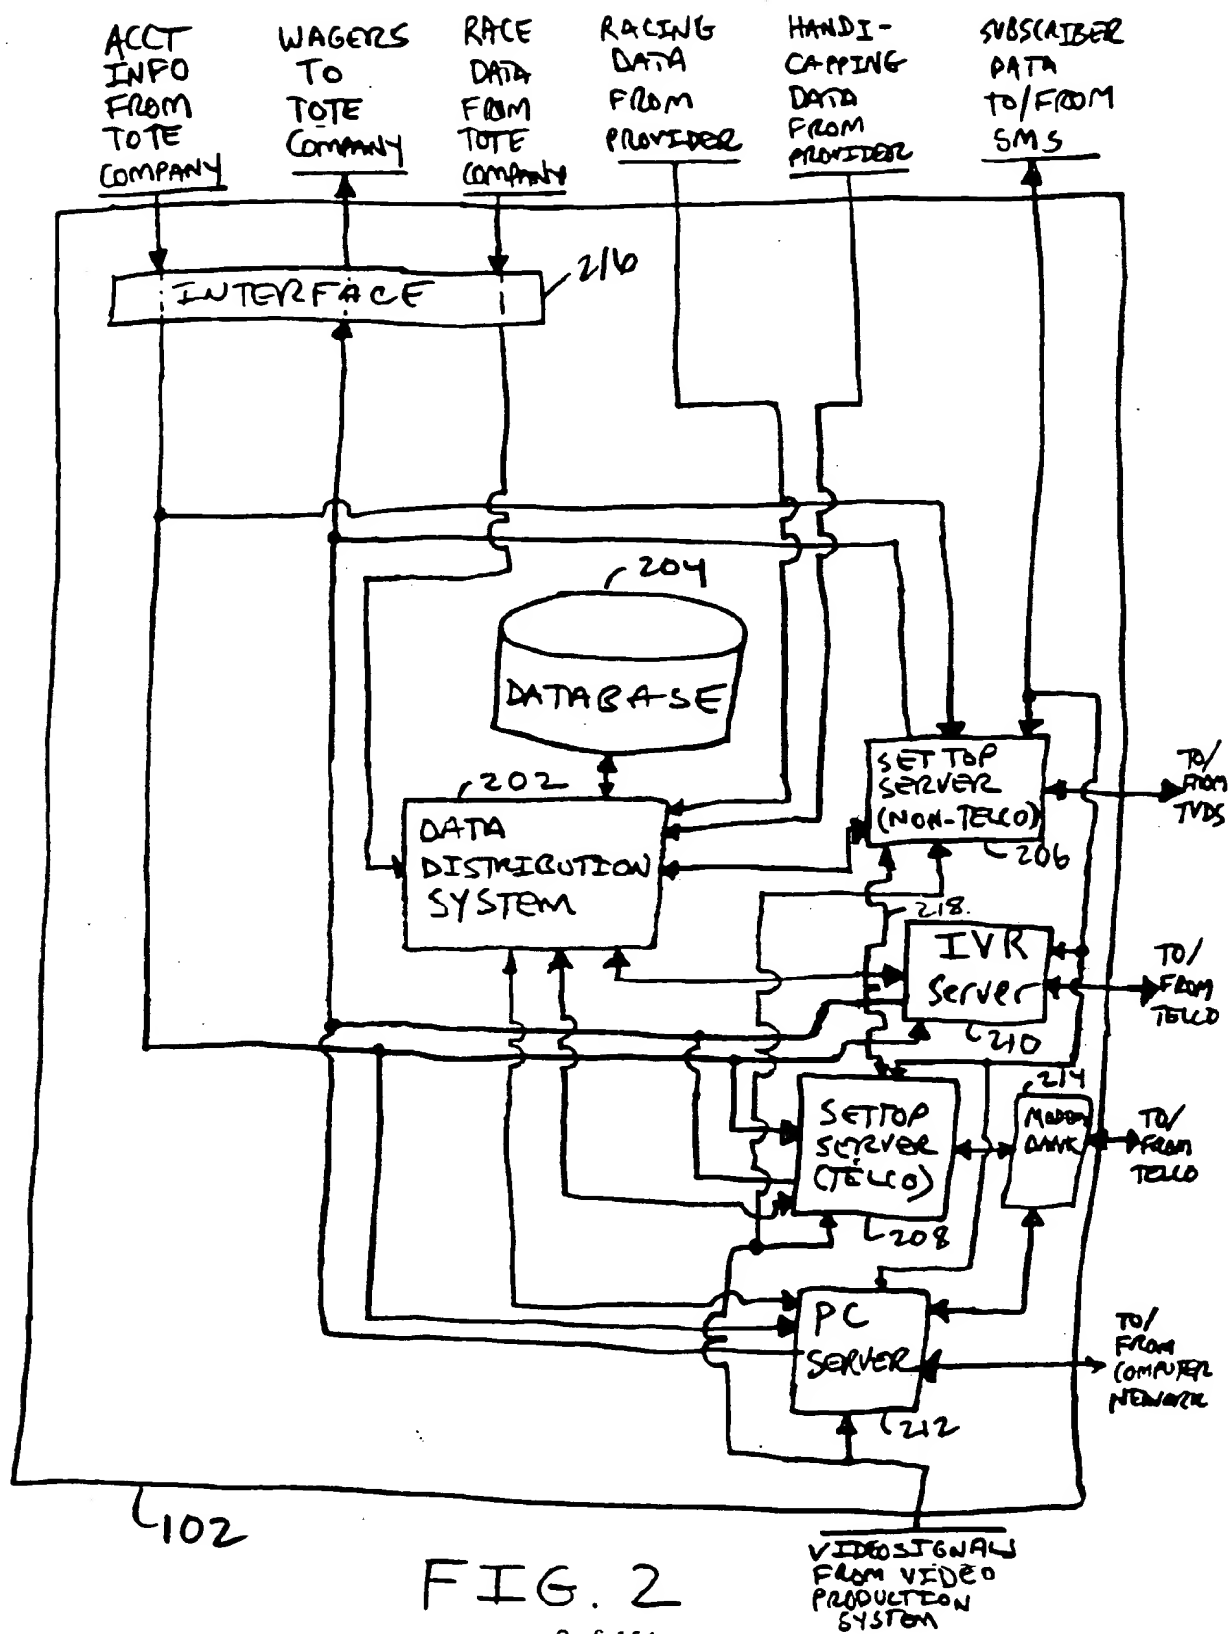 ACCT
INFO
FROM
TOTE
COMPANY
WAGERS
TO
TOTE
COMPANY
RACE
DATA
FROM
TOTE
COMPANY
RACING
DATA
FROM
PROVIDER
HANDI-
CAPPING
DATA
FROM
PROVIDER
SUBSCRIBER
DATA
TO/FROM
SMS
INTERFACE
216
204
DATABASE
202
DATA
DISTRIBUTION
SYSTEM
SET TOP
SERVER
(NON-TELCO)
206
TO/
FROM
TVDS
218
IVR
Server
210
TO/
FROM
TELCO
214
SETTOP
SERVER
(TELCO)
208
MODEM
BANK
TO/
FROM
TELCO
PC
SERVER
212
TO/
FROM
COMPUTER
NETWORK
102
VIDEO SIGNALS
FROM VIDEO
PRODUCTION
SYSTEM
FIG. 2